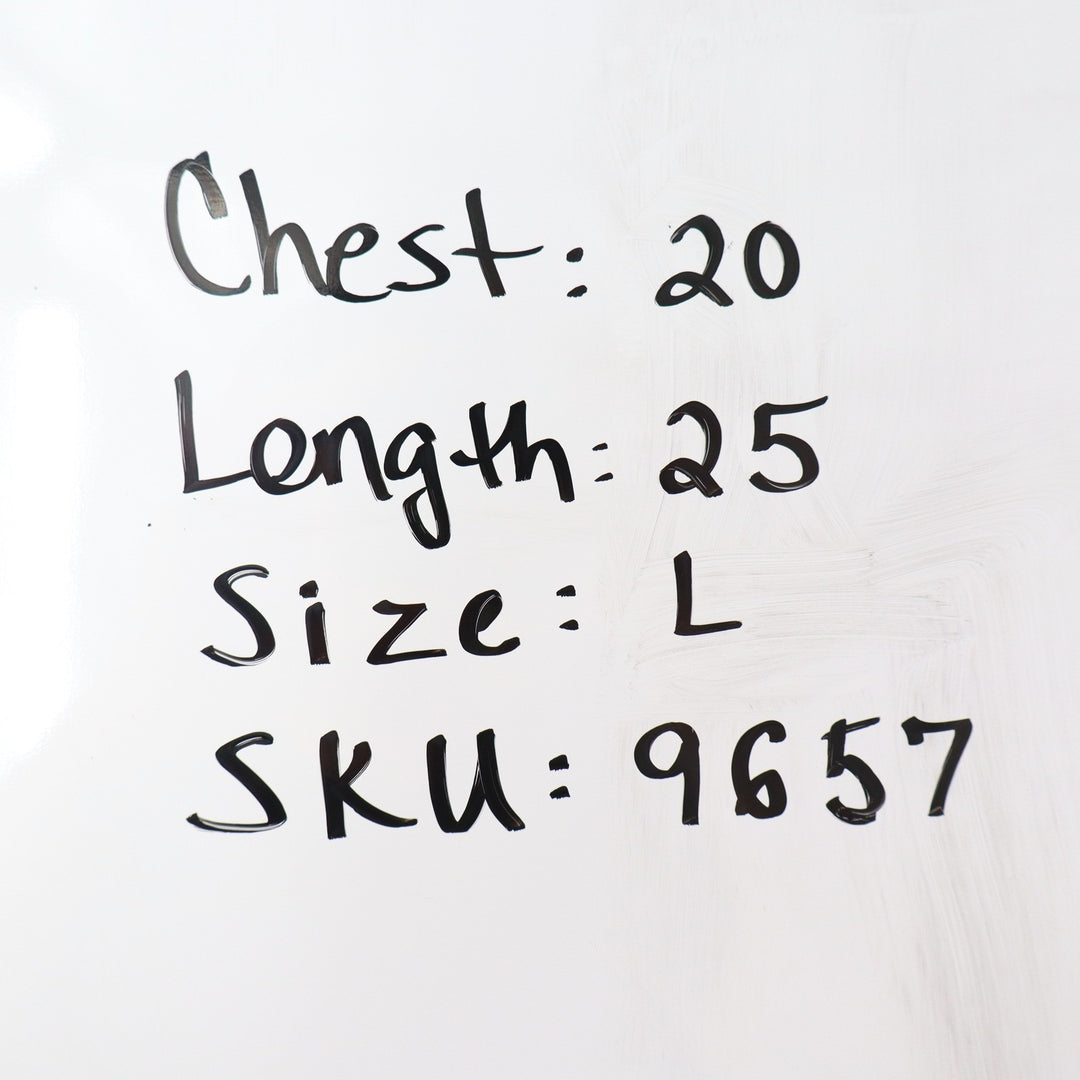 Chest: 20
Length: 25
Size: L
SKU: 9657